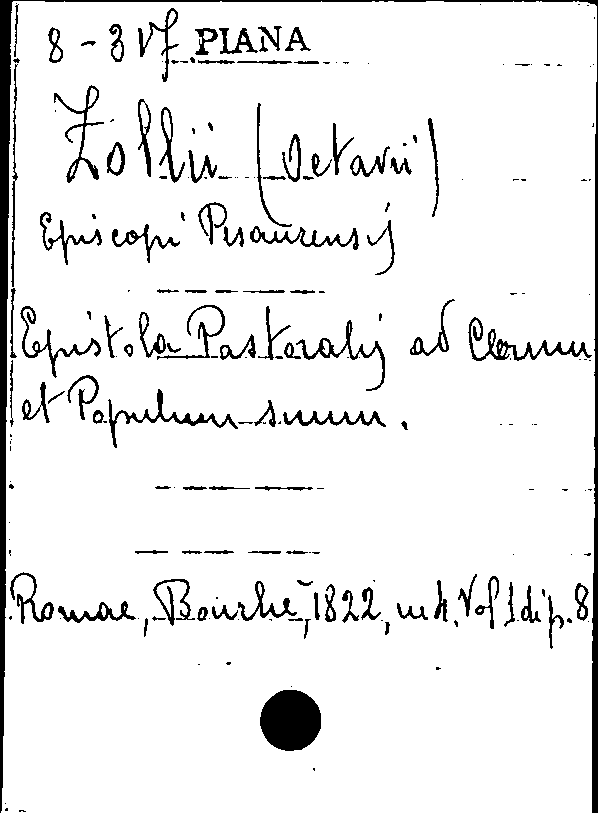 8-3 Vf PIANA
Zollii (Octavii)
Episcopi Pisaurensis
Epistola Pastoralis ad Clerum
et Populum suum.
Romae, Bourliè, 1822, in 4. Vol 1 di p. 8